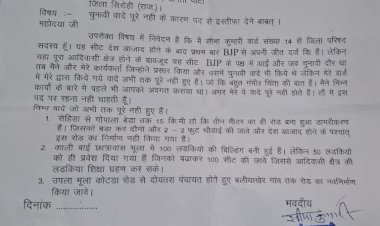 जिला सिरोही (राज.)।
विषय :- चुनावी वादे पूरे नही के कारण पद से इस्तीफा देने बाबत् ।
महोदया जी
उपरोक्त विषय में निवेदन है कि मैं सीमा कुमारी वार्ड संख्या 14 से जिला परिषद
सदस्य हूँ। यह सीट देश आजाद होने के बाद प्रथम बार BJP से अपनी जीत दर्ज कि हैं। लेकिन
यहा पूरा आदिवासी क्षेत्र होने के बावजूद यह सीट BJP के पक्ष में आई और जब चुनावी दौर था
तब मैने और मेरे कार्यकर्ता जिन्होने प्रसार किया और उसमें चुनावी वादे भी किये थे लेकिन मेरे वार्ड
मे मेरे द्वारा किये गये वादे अभी तक पूरे नही हुए है। जो कि बहुत गंभीर चिंता की बात है। मैने निम्न
कार्यो के बारे मे पहले भी आपको अवगत कराया था। अगर मेरे ये वादे पूरे नही होते है। तो मैं इस
पद पर रहना नही चाहती हूँ।
निम्न वादे जो अभी तक पूरे नही हुए हैं।
1. रोहिडा से गोपाला बडा तक 15 कि.मी तो कि तीन मीटर का ही रोड बना हुआ डामरीकरण
हैं। जिसको बडा कर दोनो ओर 2 – 2 फूट चौडाई की जावे और देश आजाद होने के पश्चात्
इस रोड का निर्माण नही किया गया हैं।
2. काली बाई छात्रावास भूला मे 100 लडकियो की बिल्डिंग बनी हुई हैं। लेकिन 50 लडकियों
को ही प्रवेश दिया गया हैं जिनको बढाकर 100 सीट की जावे जिससे आदिवासी क्षेत्र की
लडकिया शिक्षा ग्रहण कर सके।
3. उपला भूला कोटडा रोड से दोयतरा पंचायत होते हुए बलीयाखेर गांव तक रोड का नवनिर्माण
किया जावे।
दिनांक ..................
भवदीय
सीमा कुमारी